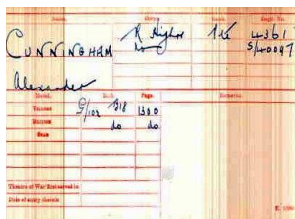 Name. Corps. Rank. Regtl. No.
CUNNINGHAM R Highrs Pte 4361
do S/40097
Alexander
Medal. Roll. Page. Remarks.
VICTORY G/102 B18 1300
BRITISH do do
STAR
Theatre of War first served in
Date of entry therein